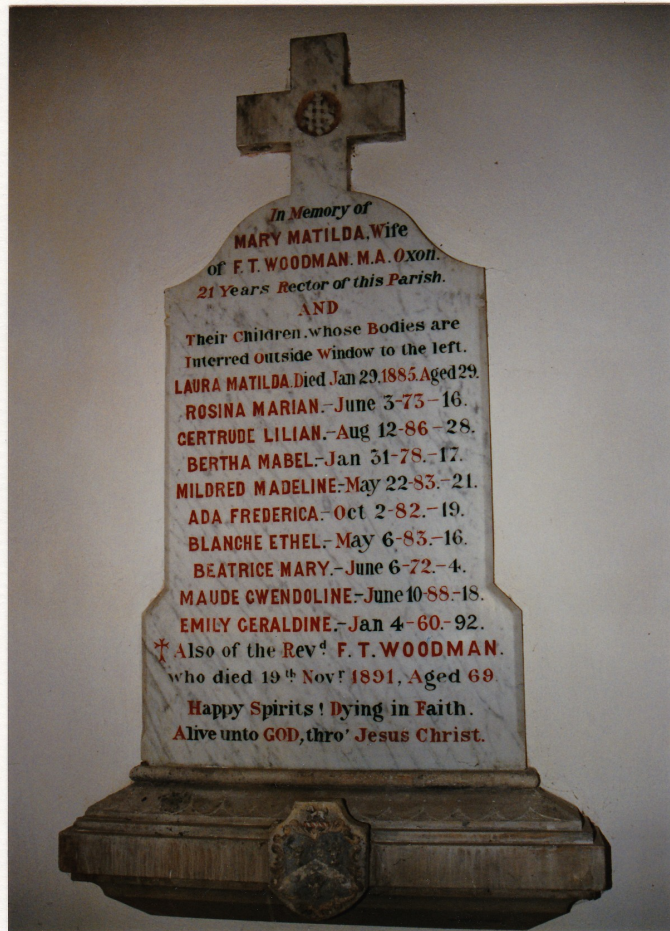 In Memory of
MARY MATILDA, Wife
of F. T. WOODMAN. M.A. Oxon.
21 Years Rector of this Parish.
AND
Their Children, whose Bodies are
Interred Outside Window to the left.
LAURA MATILDA. Died Jan 29, 1885. Aged 29.
ROSINA MARIAN.-June 3-73-16.
GERTRUDE LILIAN.-Aug 12-86-28.
BERTHA MABEL.-Jan 31-78.-17.
MILDRED MADELINE.-May 22-83.-21.
ADA FREDERICA.-Oct 2-82.-19.
BLANCHE ETHEL.-May 6-83.-16.
BEATRICE MARY.-June 6-72.-4.
MAUDE GWENDOLINE.-June 10-88.-18.
EMILY GERALDINE.-Jan 4-60.-92.
Also of the Revd F. T. WOODMAN.
who died 19th Novr 1891, Aged 69
Happy Spirits! Dying in Faith.
Alive unto GOD, thro' Jesus Christ.